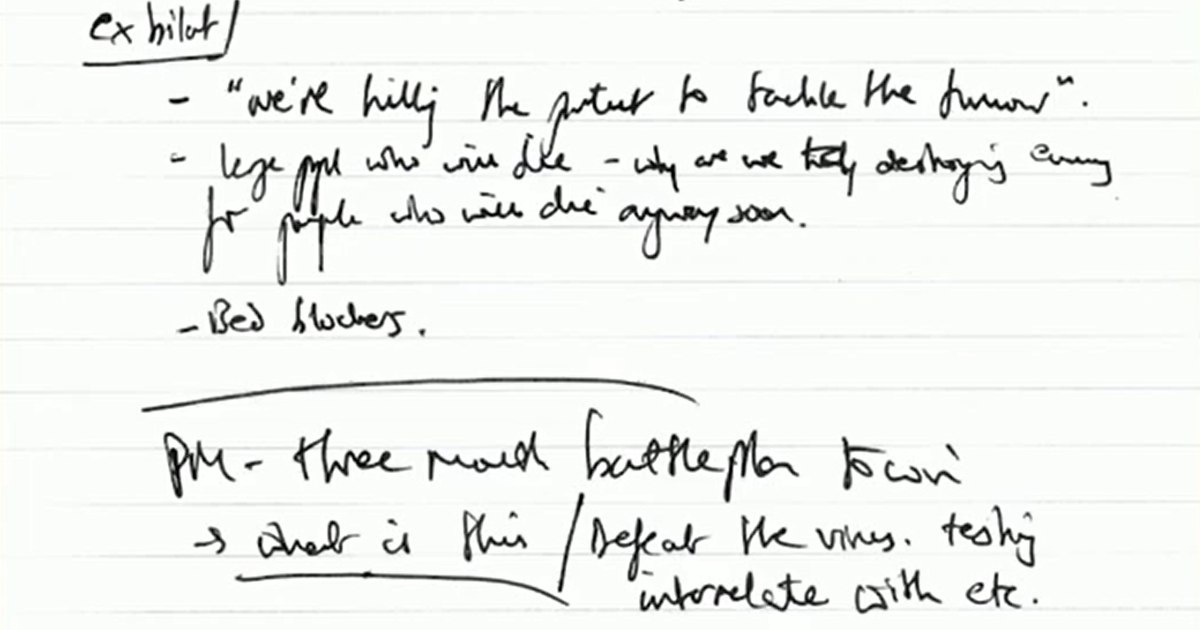 CX bilat
- "we're killing the patient to tackle the tumour".
- large ppl who will die - why are we destroying economy
for people who will die anyway soon.
- Bed blockers.
PM - three month battleplan to win
→ what is this / Defeat the virus. testing
interrelate with etc.